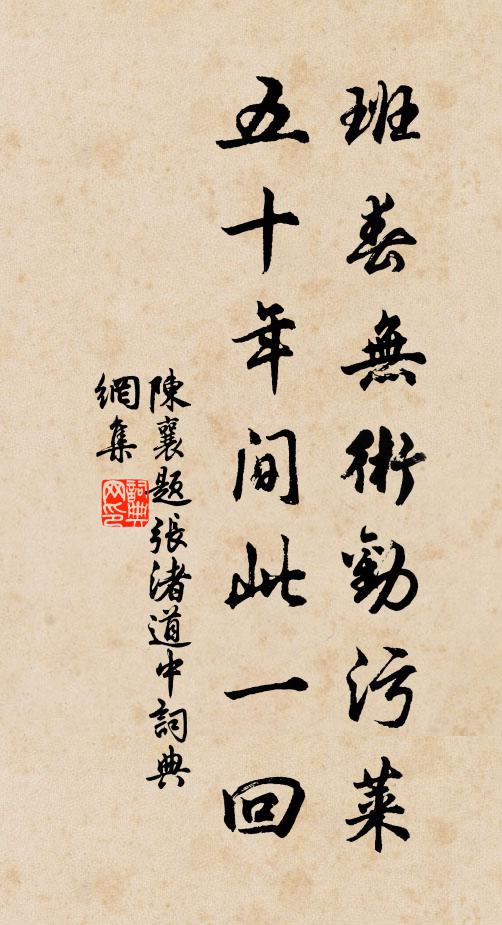 班春無術勸污萊
五十年間此一回
陳襄題張渚道中詞典
網集
詞典
网印